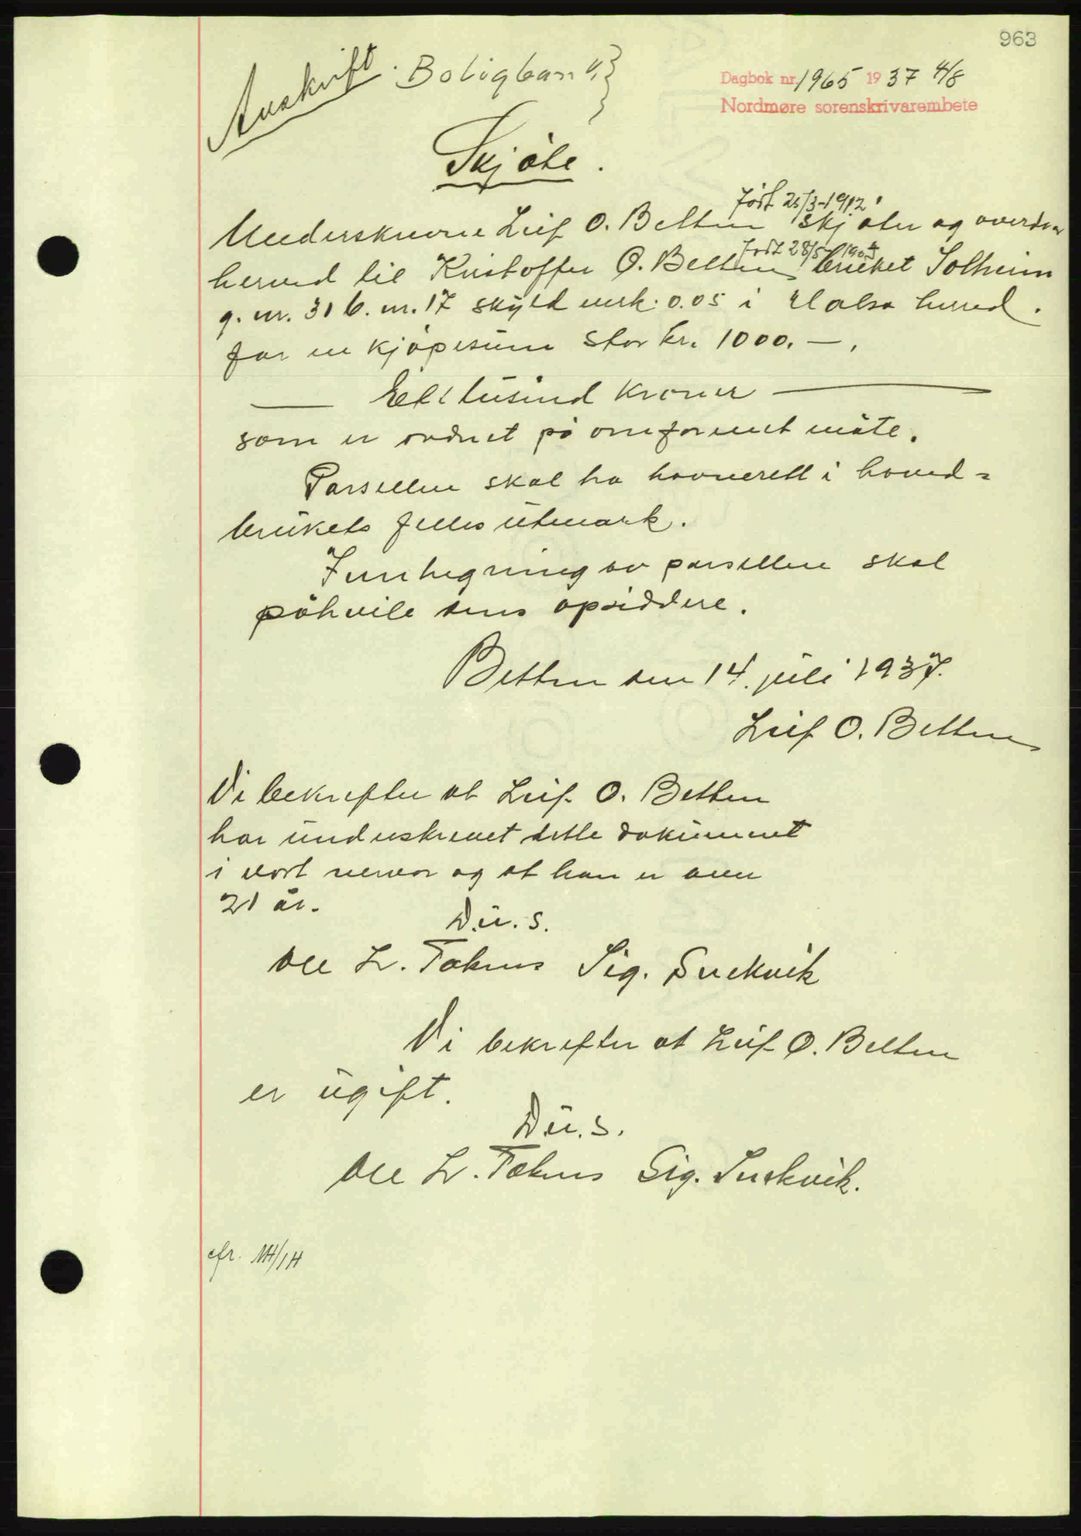 963
Avskrift. Boligban
Dagbok nr. 1965 1937 4/8
Nordmøre sorenskrivarembete
Skjøte.
født 25/3-1912
Underskrevne Leif O. Betten skjøter og overdrar
født 28/5 1904
herved til Kristoffer O. Betten bruket Solheim
g. nr. 31 b. nr. 17 skyld mrk. 0.05 i Halsa herred.
for en kjøpesum stor kr. 1000.—.
— Ett tusind kroner —
som er ordnet på omforenet måte.
Parsellen skal ha havnerett i hoved=
brukets felles utmark.
Innhegning av parsellen skal
påhvile dens opsiddere.
Betten den 14. juli 1937.
Leif O. Betten
Vi bekrefter at Leif O. Betten
har underskrevet dette dokument
i vort nærvær og at han er over
21 år.
D.u.s.
Ole L. Tøknes Sig. Snekvik
Vi bekrefter at Leif O. Betten
er ugift.
D.u.s.
Ole L. Tøknes Sig. Snekvik.
cfr. MH/IH